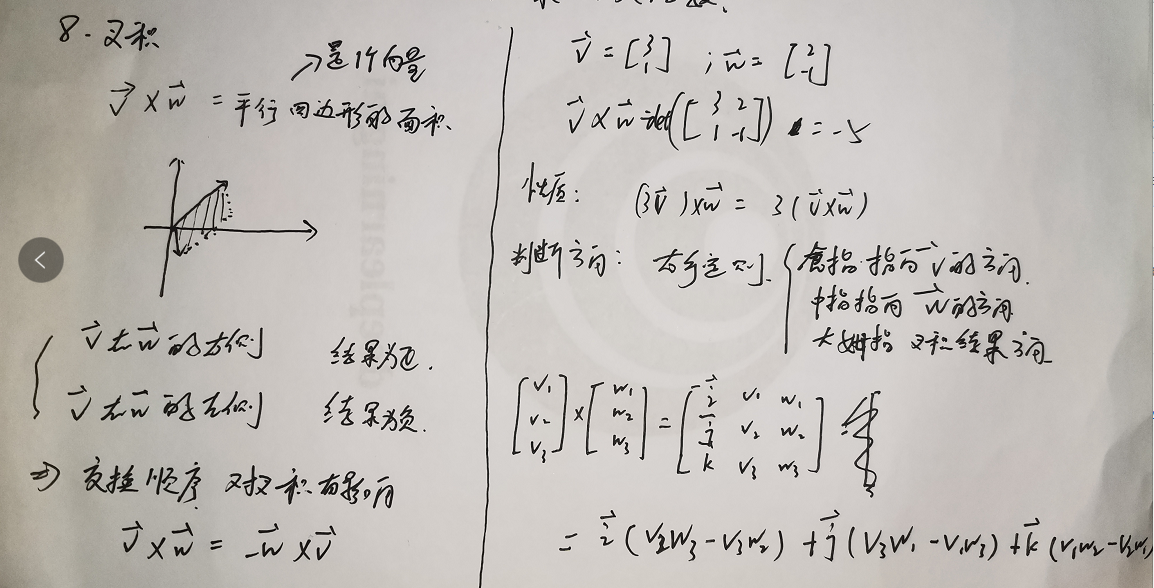 8. 叉积
→是个向量
v⃗ × w⃗ = 平行四边形的面积
v⃗在w⃗的右侧 结果为正.
v⃗在w⃗的左侧 结果为负.
⇒ 交换顺序 对叉积有影响
v⃗ × w⃗ = -w⃗ × v⃗
v⃗ = [3 1] ; w⃗ = [2 -1]
v⃗ × w⃗ = det([3 2 1 -1]) = -5
性质: (3v⃗) × w⃗ = 3(v⃗ × w⃗)
判断方向: 右手定则.
食指指向v⃗的方向.
中指指向w⃗的方向
大姆指 叉积结果方向
[v₁ v₂ v₃] × [w₁ w₂ w₃] = [i⃗ v₁ w₁ j⃗ v₂ w₂ k v₃ w₃]
= i⃗(v₂w₃ - v₃w₂) + j⃗(v₃w₁ - v₁w₃) + k⃗(v₁w₂ - v₂w₁)
deeplearning